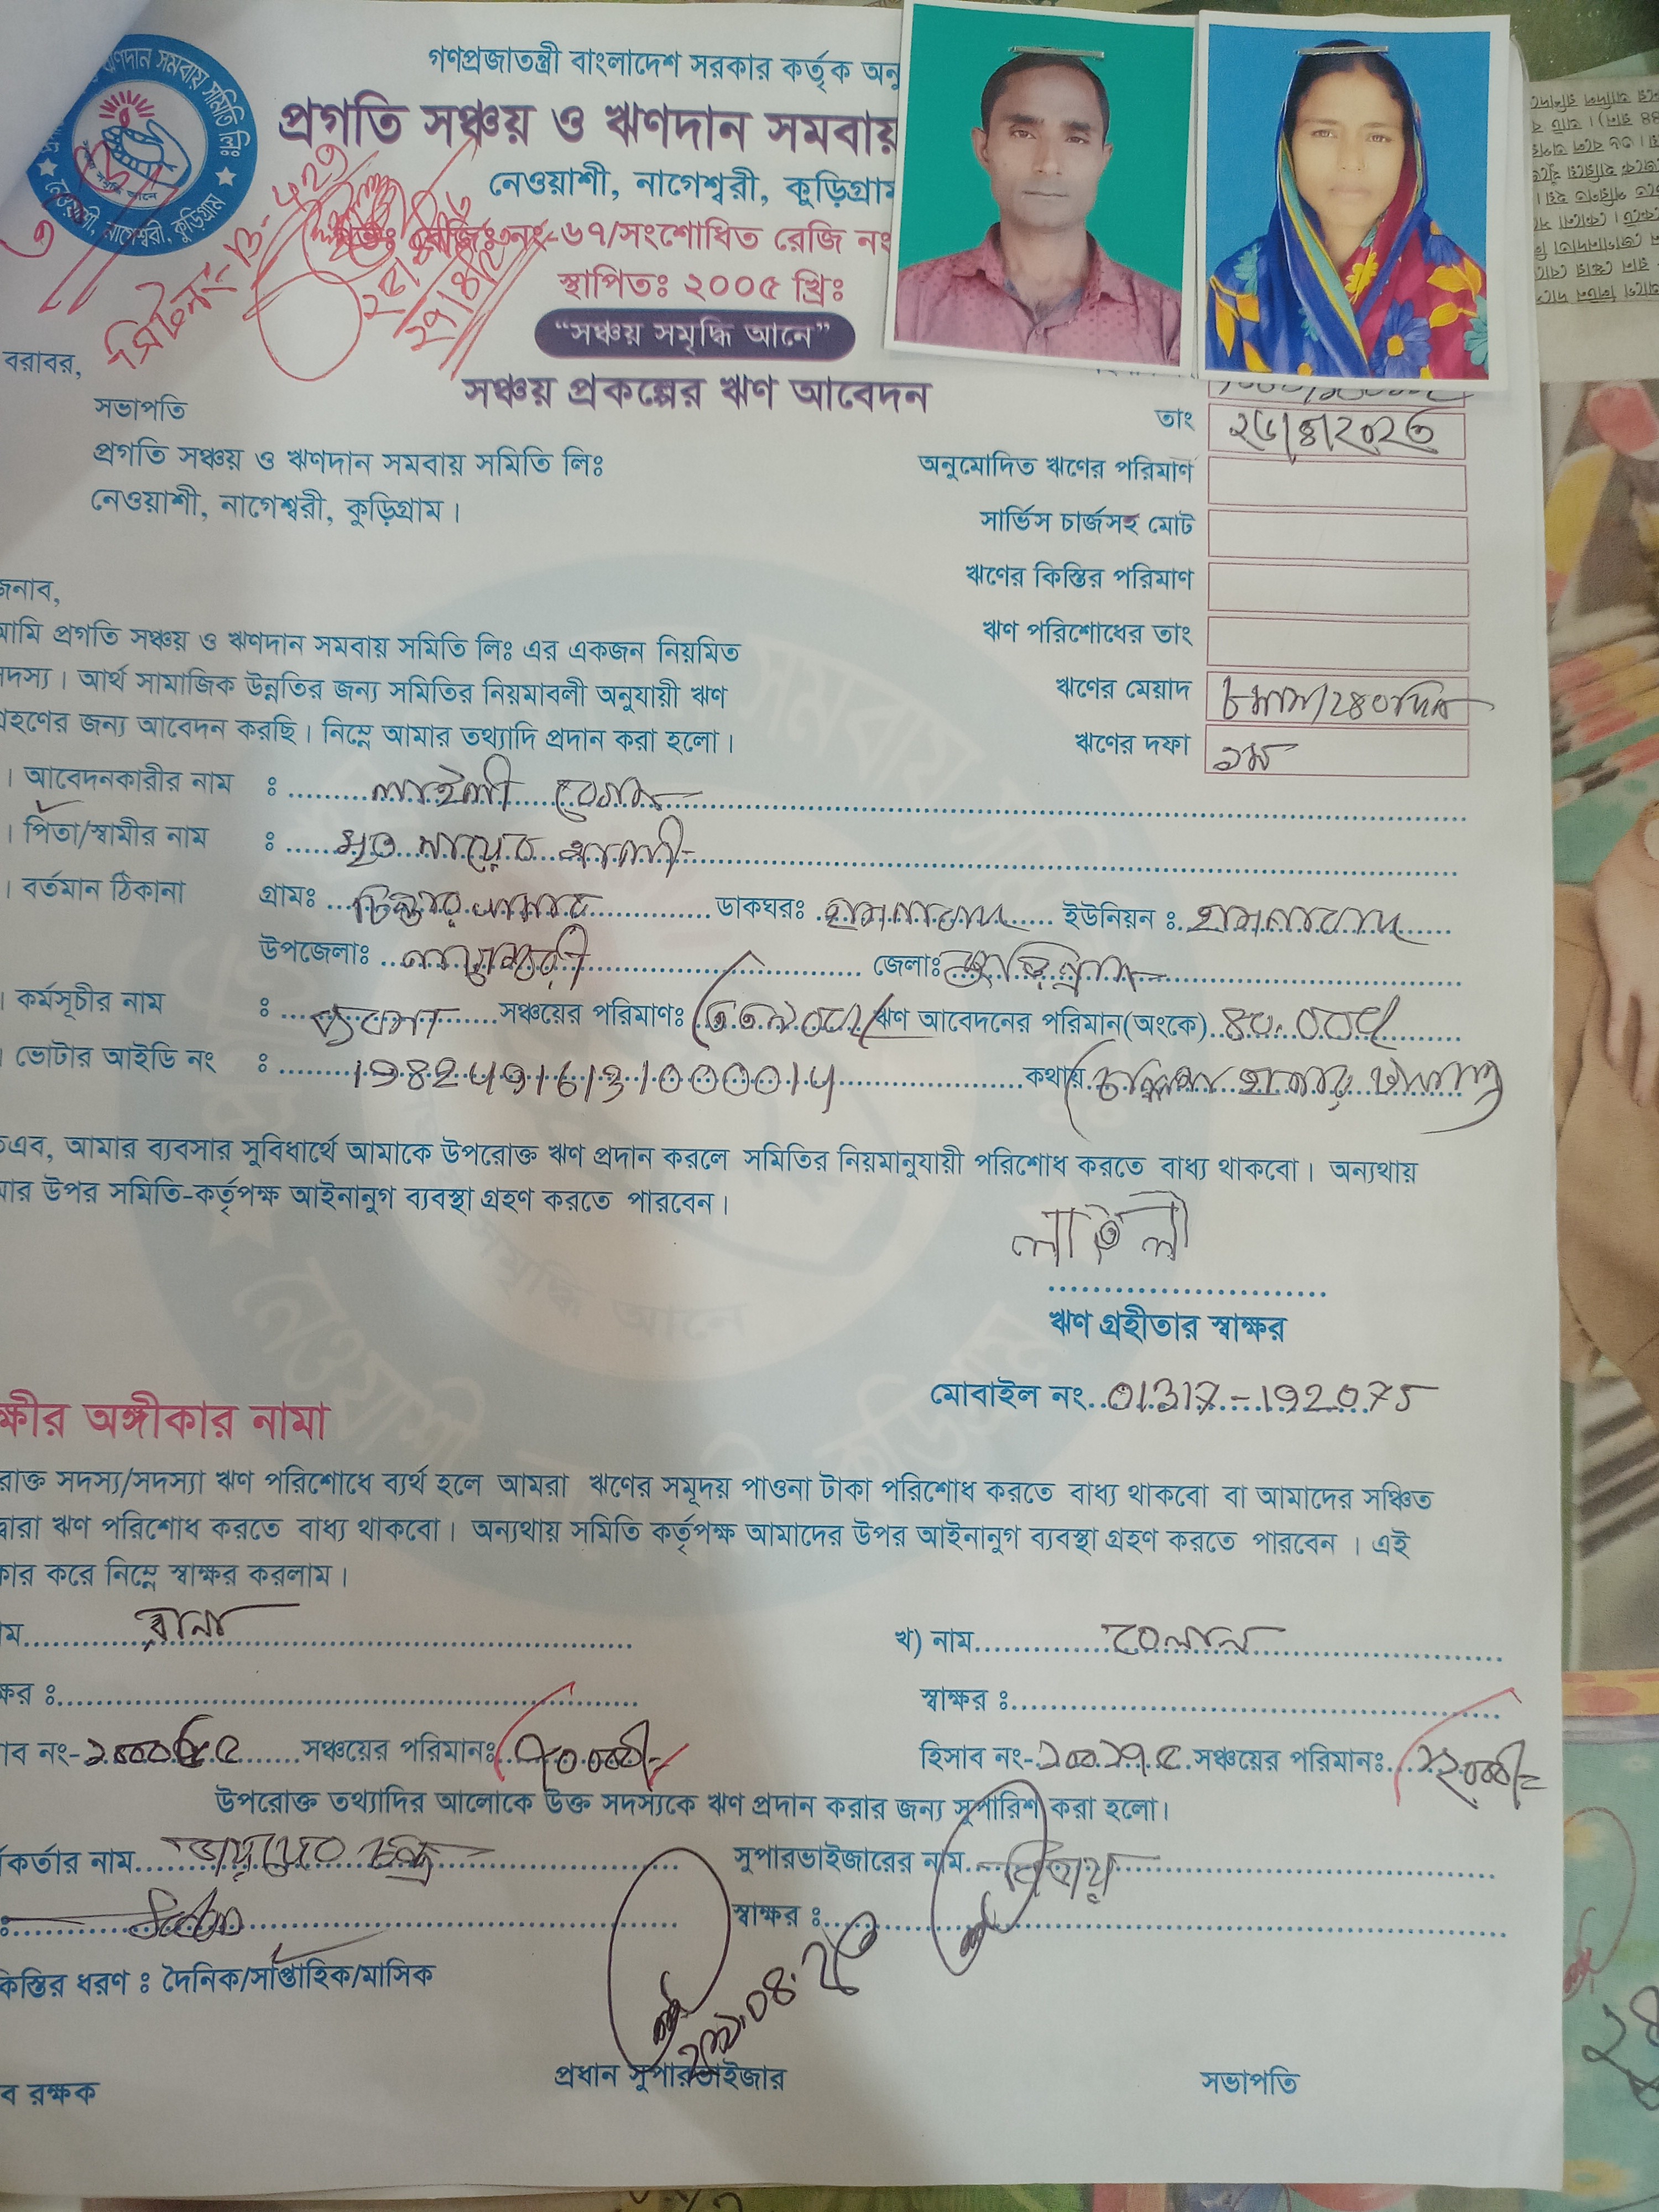 ঋণদান সমবায় সমিতি লিঃ
নেওয়াশী, নাগেশ্বরী, কুড়িগ্রাম
গণপ্রজাতন্ত্রী বাংলাদেশ সরকার কর্তৃক
প্রগতি সঞ্চয় ও ঋণদান সমবায়
নেওয়াশী, নাগেশ্বরী, কুড়িগ্রাম
রেজিঃ নং-৬৭/সংশোধিত রেজি নং
স্থাপিতঃ ২০০৫ খ্রিঃ
“সঞ্চয় সমৃদ্ধি আনে”
সঞ্চয় প্রকল্পের ঋণ আবেদন
বরাবর,
সভাপতি
প্রগতি সঞ্চয় ও ঋণদান সমবায় সমিতি লিঃ
নেওয়াশী, নাগেশ্বরী, কুড়িগ্রাম।
তাং
অনুমোদিত ঋণের পরিমাণ
সার্ভিস চার্জসহ মোট
ঋণের কিস্তির পরিমাণ
ঋণ পরিশোধের তাং
ঋণের মেয়াদ ৮ মাস/২৪০ দিন
ঋণের দফা ১ম
জনাব,
আমি প্রগতি সঞ্চয় ও ঋণদান সমবায় সমিতি লিঃ এর একজন নিয়মিত
সদস্য। আর্থ সামাজিক উন্নতির জন্য সমিতির নিয়মাবলী অনুযায়ী ঋণ
গ্রহণের জন্য আবেদন করছি। নিম্নে আমার তথ্যাদি প্রদান করা হলো।
। আবেদনকারীর নাম : লাইলী বেগম
। পিতা/স্বামীর নাম : মৃত
। বর্তমান ঠিকানা গ্রামঃ ডাকঘরঃ হাসনাবাদ ইউনিয়ন : হাসনাবাদ
উপজেলাঃ নাগেশ্বরী জেলাঃ কুড়িগ্রাম
। কর্মসূচীর নাম : ব্যবসা সঞ্চয়ের পরিমাণঃ ঋণ আবেদনের পরিমান(অংকে) ৪০.০০০/
। ভোটার আইডি নং : 19824916131000014 কথায় চল্লিশ হাজার টাকা মাত্র
অতএব, আমার ব্যবসার সুবিধার্থে আমাকে উপরোক্ত ঋণ প্রদান করলে সমিতির নিয়মানুযায়ী পরিশোধ করতে বাধ্য থাকবো। অন্যথায়
আমার উপর সমিতি-কর্তৃপক্ষ আইনানুগ ব্যবস্থা গ্রহণ করতে পারবেন।
লাইলী
ঋণ গ্রহীতার স্বাক্ষর
মোবাইল নং 01317-192075
ক্ষীর অঙ্গীকার নামা
রোক্ত সদস্য/সদস্যা ঋণ পরিশোধে ব্যর্থ হলে আমরা ঋণের সমূদয় পাওনা টাকা পরিশোধ করতে বাধ্য থাকবো বা আমাদের সঞ্চিত
দ্বারা ঋণ পরিশোধ করতে বাধ্য থাকবো। অন্যথায় সমিতি কর্তৃপক্ষ আমাদের উপর আইনানুগ ব্যবস্থা গ্রহণ করতে পারবেন । এই
কার করে নিম্নে স্বাক্ষর করলাম।
ম রানা খ) নাম বেলাল
ক্ষর : স্বাক্ষর :
ব নং- সঞ্চয়ের পরিমানঃ হিসাব নং- সঞ্চয়ের পরিমানঃ
উপরোক্ত তথ্যাদির আলোকে উক্ত সদস্যকে ঋণ প্রদান করার জন্য সুপারিশ করা হলো।
কর্তার নাম চন্দ্র সুপারভাইজারের নাম
স্বাক্ষর :
কিস্তির ধরণ : দৈনিক/সাপ্তাহিক/মাসিক
ব রক্ষক প্রধান সুপারভাইজার সভাপতি